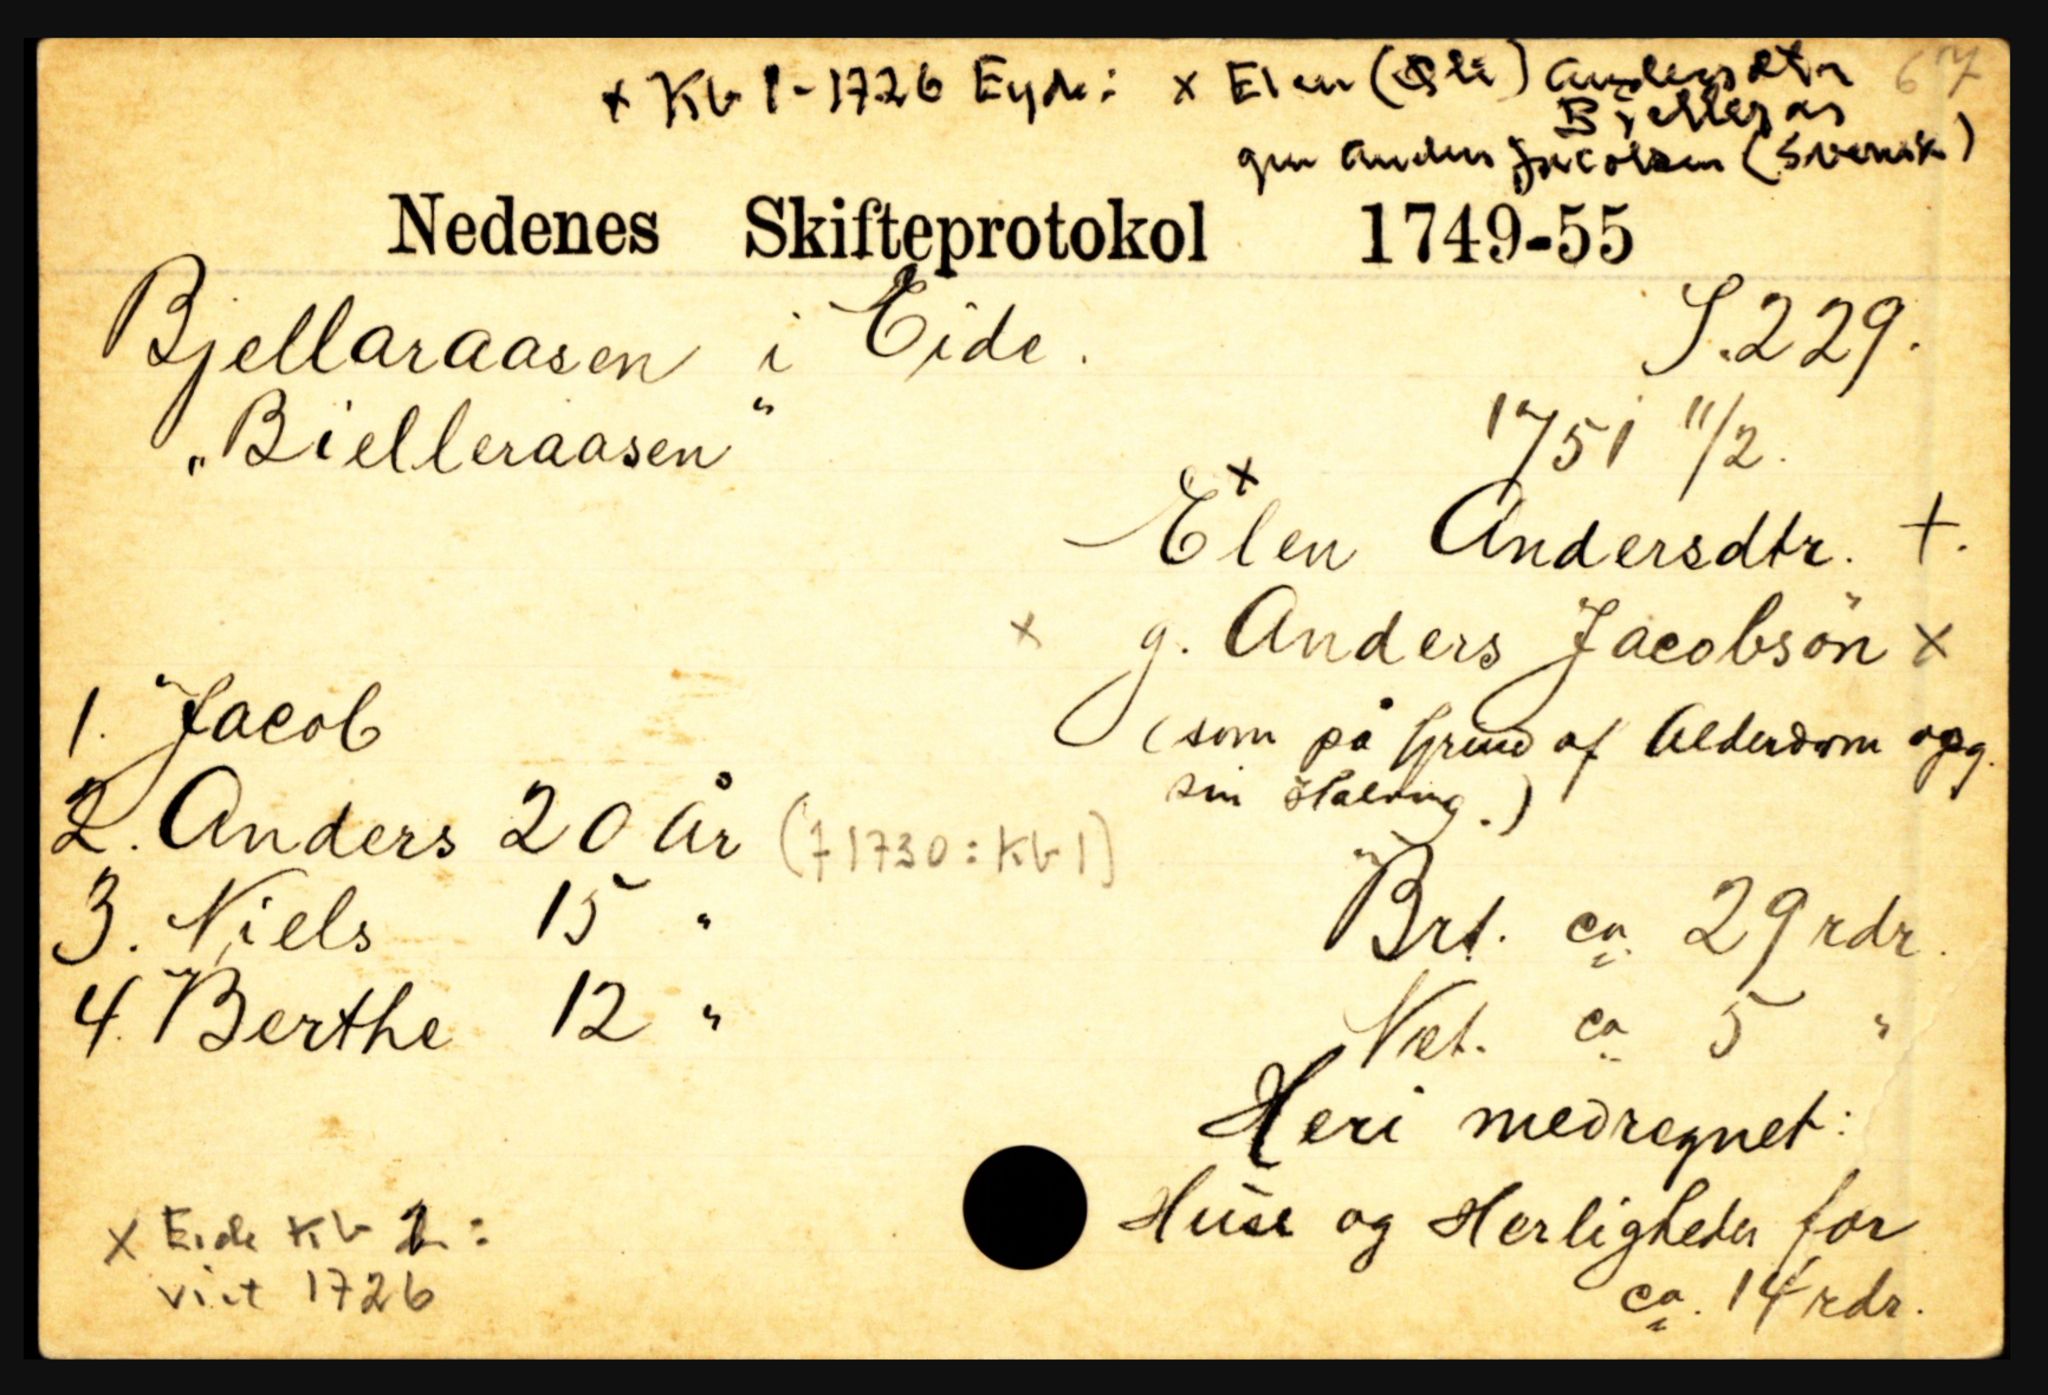 x Kb 1-1726 Eyde: x Elen (Eli) Andersdtr 67
Bjelleraas
gm Anders Jacobsen (Svensk)
Nedenes Skifteprotokol 1749-55
Bjellaraasen i Eide. S. 229.
"Bielleraasen" 1751 11/2.
x
Elen Andersdtr. †.
x g. Anders Jacobsön x
(som på Grund af Alderdom opg.
sin )
1. Jacob
2. Anders 20 År (f 1730: Kb 1)
3. Niels 15 "
4. Berthe 12 "
Brt. ca. 29 rdr.
Net. ca 5 "
Heri medregnet:
Huse og Herligheder for
ca. 14 rdr.
x Eide Kb 1:
viet 1726